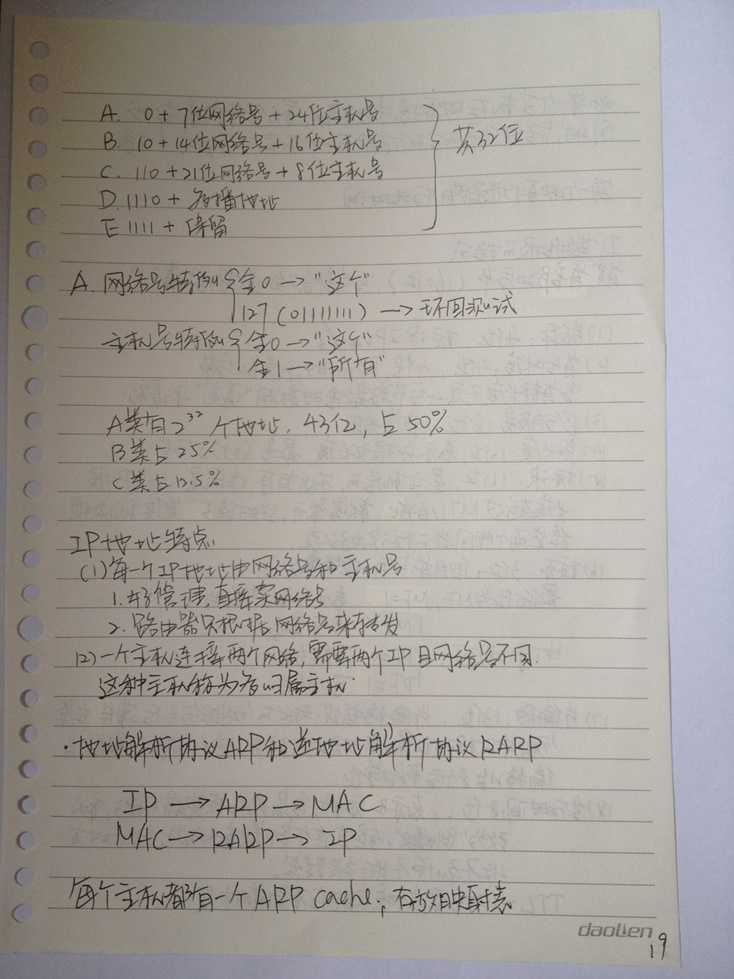 A. 0+7位网络号+24位主机号
B. 10+14位网络号+16位主机号
C. 110+21位网络号+8位主机号
D. 1110+多播地址
E 1111+保留
共32位
A. 网络号特例 { 全0→"这个"
127(01111111)→环回测试
主机号特例 { 全0→"这个"
全1→"所有"
A类有2³² 个地址, 43亿, 占50%
B类占25%
C类占12.5%
IP地址特点
(1) 每一个IP地址由网络号和主机号
1. 好管理, 直接买网络号
2. 路由器只根据网络号来转发
(2) 一个主机连接两个网络, 需要两个IP且网络号不同.
这种主机称为多归属主机.
·地址解析协议ARP和逆地址解析协议RARP
IP→ARP→MAC
MAC→RARP→IP
每个主机都有一个ARP cache, 存放映射表
daolien
19